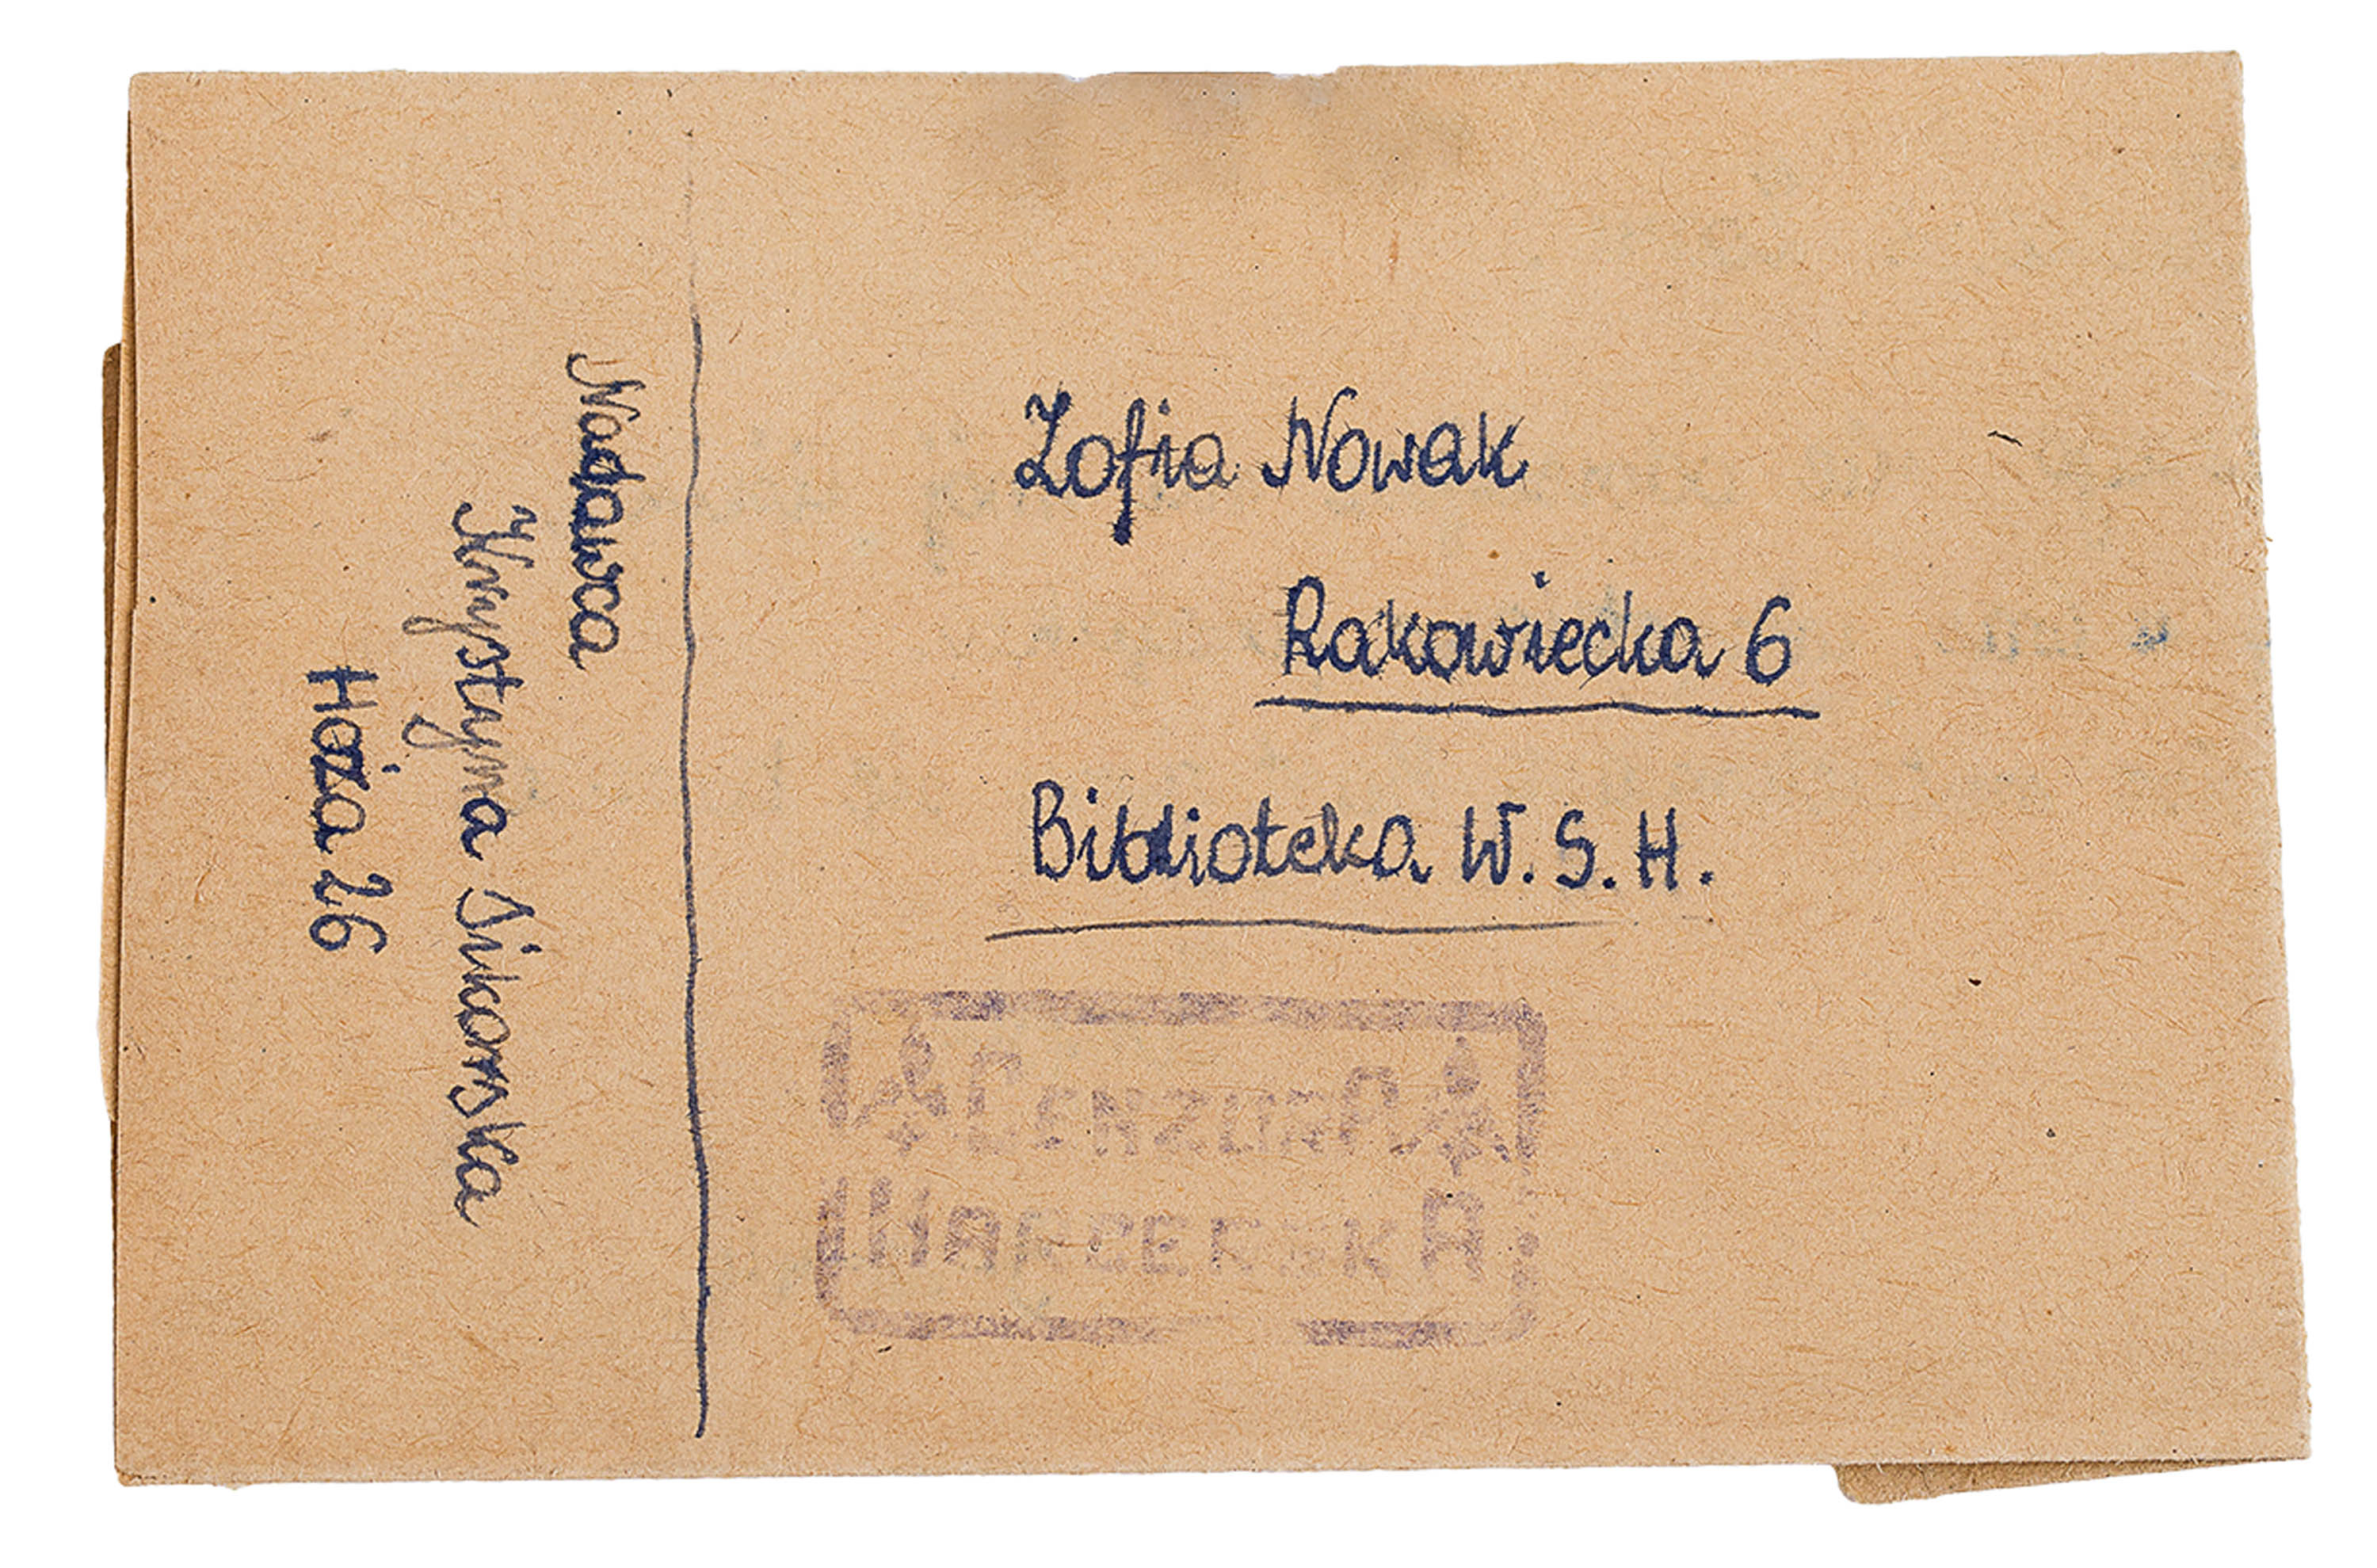 Nadawca
Krystyna Sikorska
Hoża 26
Zofia Nowak
Rakowiecka 6
Biblioteka W. S. H.
CENZURA
HARCERSKA